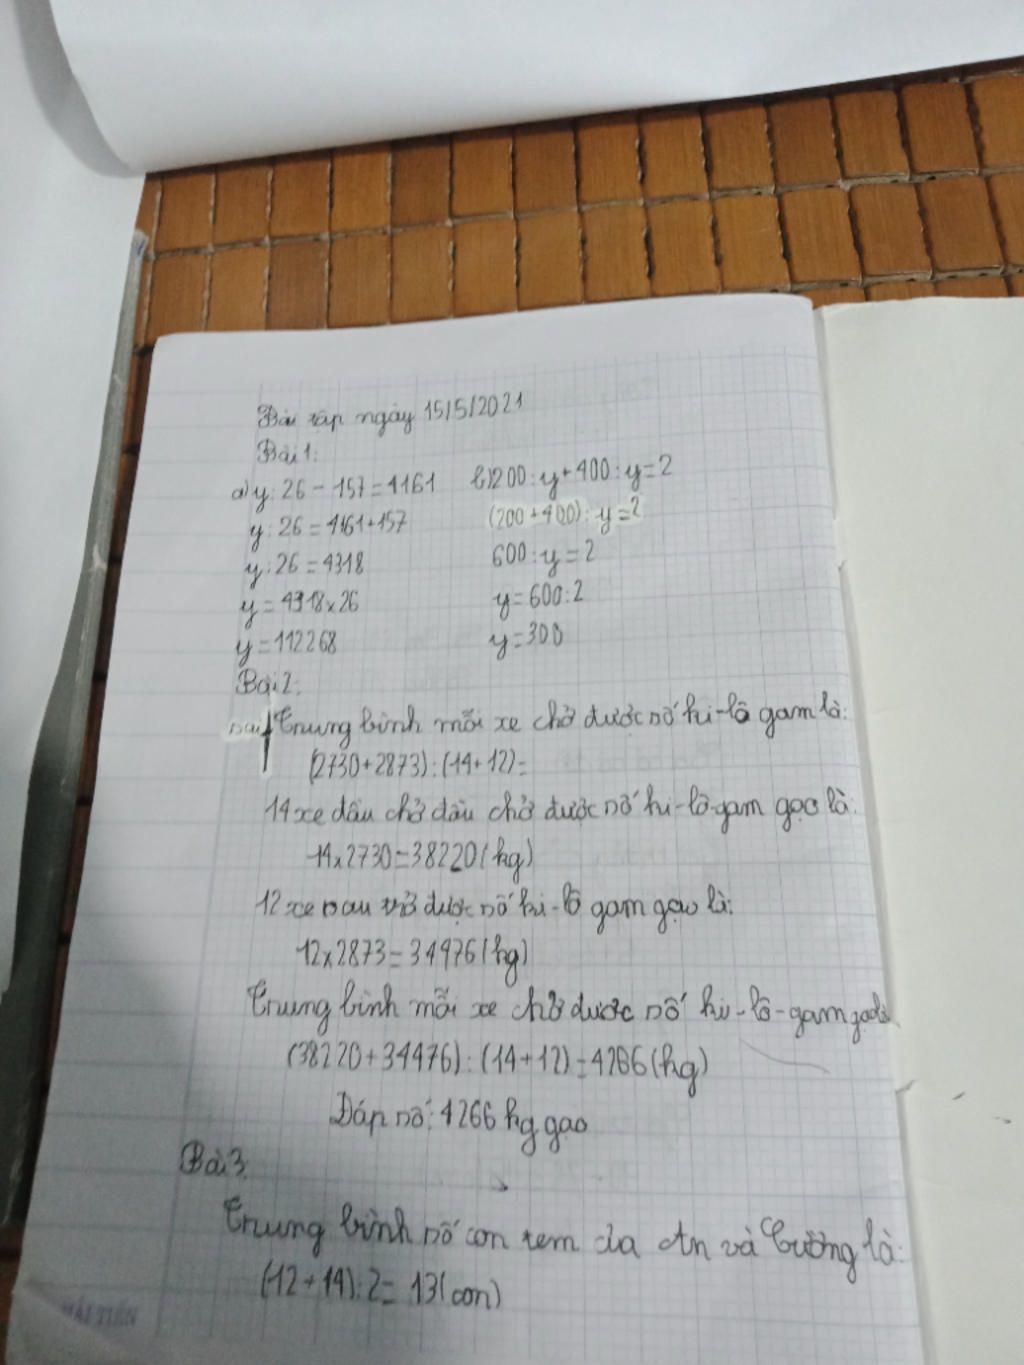 Bài tập ngày 15/5/2021
Bài 1:
a) y : 26 - 157 = 4161
y : 26 = 4161 + 157
y : 26 = 4318
y = 4318 x 26
y = 112268
b) 200 : y + 400 : y = 2
(200 + 400) : y = 2
600 : y = 2
y = 600 : 2
y = 300
Bài 2:
sai Trung bình mỗi xe chở được số ki-lô gam là:
(2730 + 2873) : (14 + 12) =
14 xe đầu chở đầu chở được số ki-lô-gam gạo là:
14 x 2730 = 38220 (kg)
12 xe sau chở được số ki-lô gam gạo là:
12 x 2873 = 34476 (kg)
Trung bình mỗi xe chở được số ki-lô-gam gạo là
(38220 + 34476) : (14 + 12) = 4266 (kg)
Đáp số: 4266 kg gạo
Bài 3:
Trung bình số con tem của An và Cường là:
(12 + 14) : 2 = 13 (con)
HẢI TIẾN